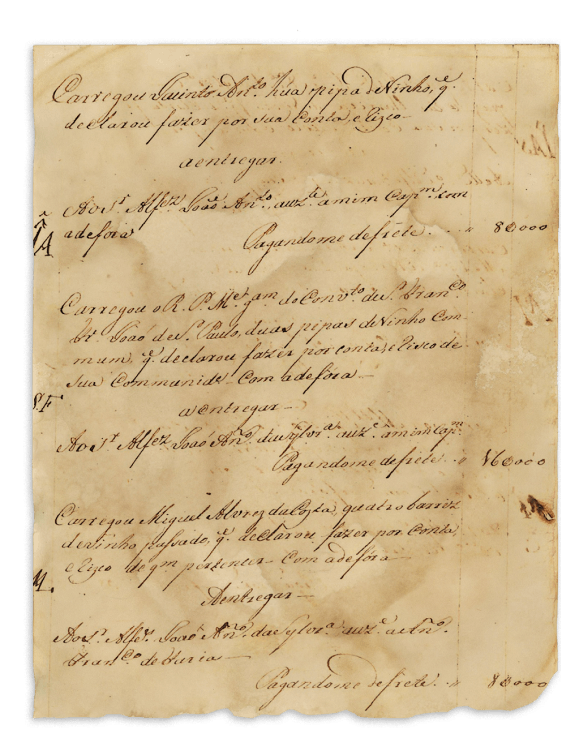 Carregou Jacinto Ant.º hũa pipa de Vinho, q.
declarou fazer por sua Conta, e Rizco
a entregar
Ao S.r Alfez João Ant.º auz.te a mim Cap.m com
a de fora
Pagandome de frete .. " 80000
Carregou o R. P. M.e do Conv.to de S. Fran.co
Fr. João de S. Paulo, duas pipas de Vinho Com-
mum, q. declarou fazer por conta, e Risco de
sua Communid.e Com a de fora
a entregar
Ao S.r Alfez João An.º da Sylvr.a auz.e a mim Cap.m
Pagandome de frete .. " 160000
Carregou Miguel Alvrez da Costa, quatro barriz
de vinho passado, q. declarou fazer por Conta,
e Rizco de q.m pertencer Com a de fóra
A entregar
Ao S.r Alfez. João An.º da Sylvr.a auz.e a An.º
Fran.co de Faria
Pagandome de frete .. " 80000